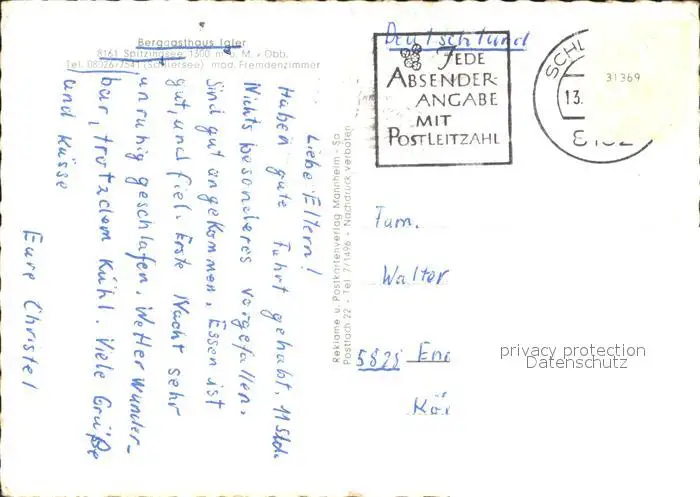 Berggasthaus Igler
8161 Spitzingsee, 1300 m ü. M. • Obb.
Tel. 08026/7541 (Schliersee) mod. Fremdenzimmer
Liebe Eltern!
Haben gute Fahrt gehabt. 11 Std.
Nichts besonderes vorgefallen.
Sind gut angekommen. Essen ist
gut, und fiel. Erste Nacht sehr
unruhig geschlafen. Wetter wunder-
bar, trotzdem Kühl. Viele Grüße
und Küsse
Eure Christel
Reklame u. Postkartenverlag Mannheim - Sa
Postfach 22 - Tel. 7/1496 - Nachdruck verboten
Deutschland
JEDE
ABSENDER-
ANGABE
MIT
POSTLEITZAHL
SCHL
13.
31369
Fam.
Walter
privacy protection
Datenschutz